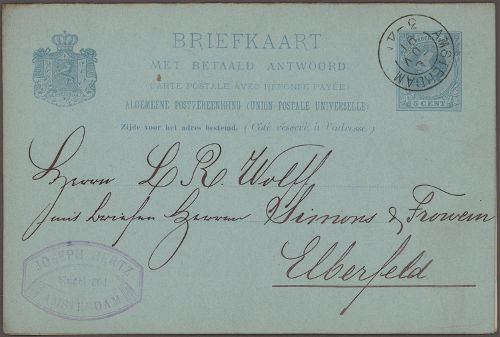 BRIEFKAART
MET BETAALD ANTWOORD
(CARTE POSTALE AVEC RÉPONSE PAYÉE)
ALGEMEENE POSTVEREENIGING (UNION POSTALE UNIVERSELLE)
Zijde voor het adres bestemd. (Côté réservé à l'adresse.)
AMSTERDAM
5 CENT
Herrn L. R. Wolff
Herren Simons & Frowein
Elberfeld
JOSEPH HERTZ
AMSTERDAM